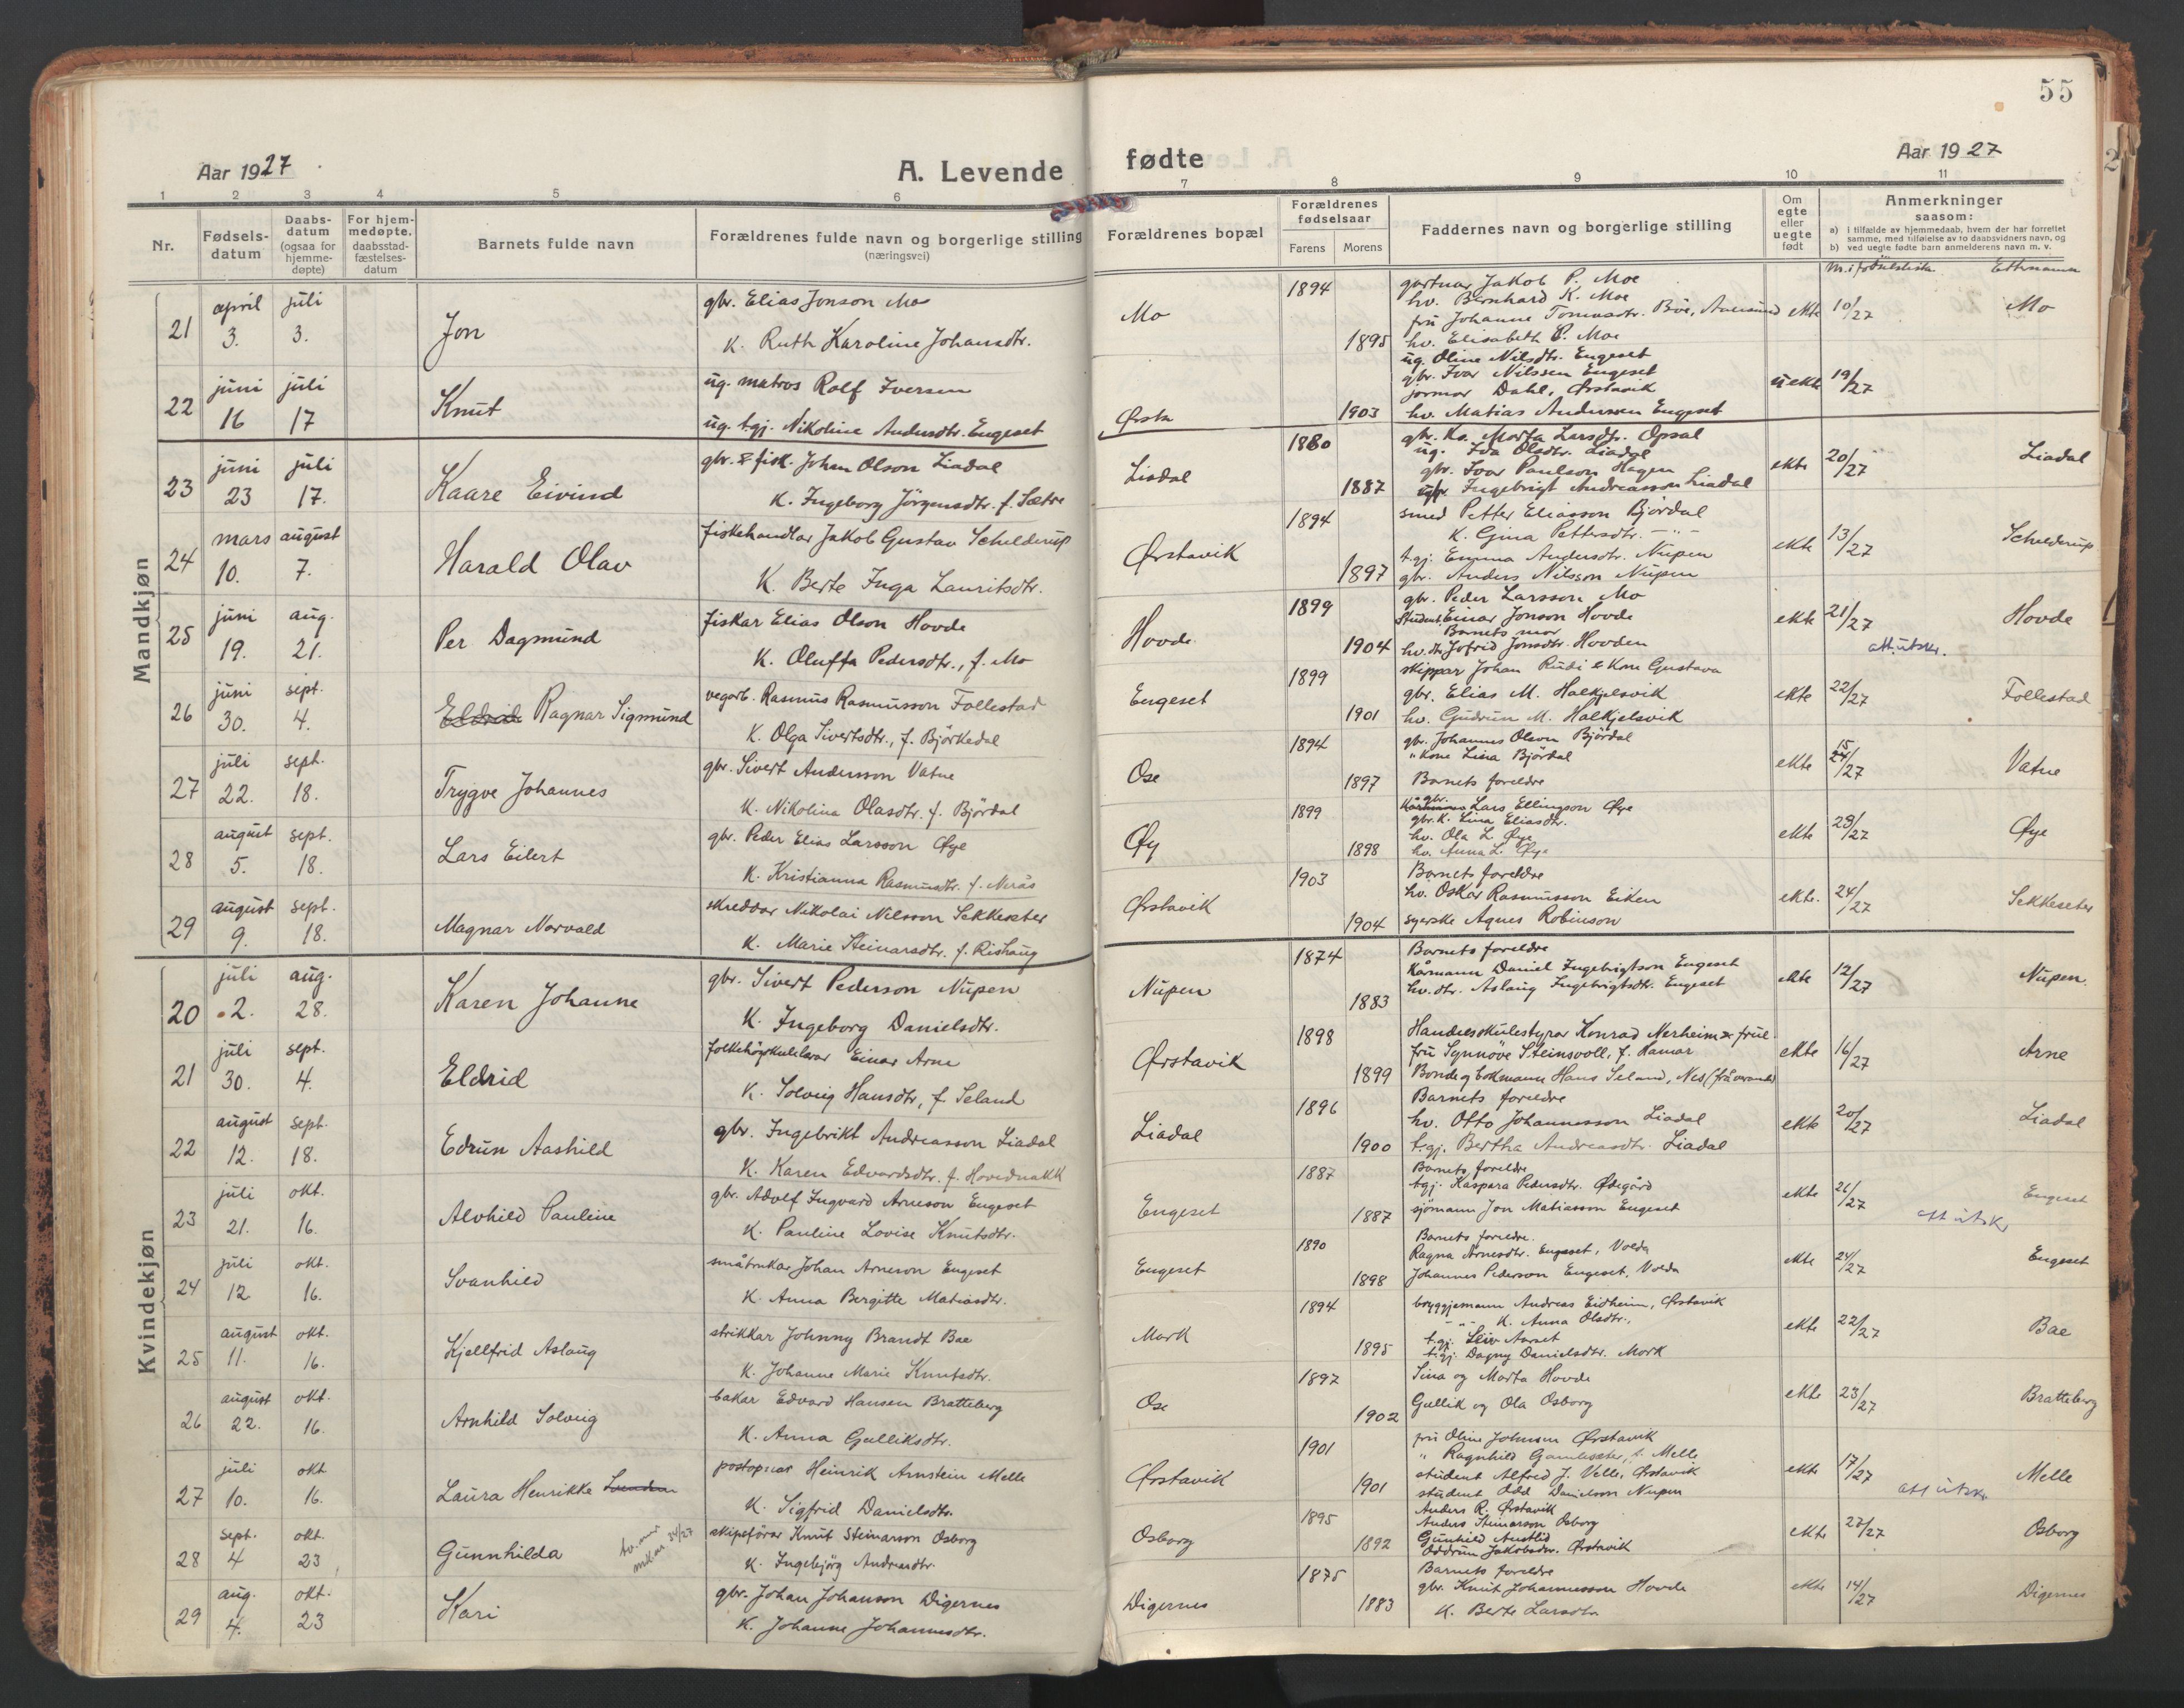 55
Aar 1927
A. Levende
fødte
Aar 1927
1 2 3 4 5 6 7 8 9 10 11
Nr.
Fødsels-
datum
Daabs-
datum
(ogsaa for
hjemme-
døpte)
For hjem-
medøpte.
daabsstad-
fæstelses-
datum
Barnets fulde navn
Forældrenes fulde navn og borgerlige stilling
(næringsvei)
Forældrenes bopæl
Forældrenes
fødselsaar
Farens Morens
Faddernes navn og borgerlige stilling
Om
egte
eller
uegte
født
Anmerkninger
saasom:
a) i tilfælde av hjemmedaab, hvem der har forrettet
samme, med tilføielse av to daabsvidners navn, og
b) ved uegte fødte barn anmelderens navn m. v.
Mandkjøn
21 april 3. juli 3. Jon
gbr. Elias Jonson Mo
K. Ruth Karoline Johansdtr.
Mo 1894 1895
gartnar Jakob P. Moe
hv. Bernhard K. Moe
fru Johanne Tomasdtr. Bøe, Aalesund
hv. Elisabeth P. Moe
ekte 10/27 Mo
22 juni 16 juli 17 Knut
ug. matros Rolf Iversen
ug. t.gj. Nikoline Andersdtr. Engeset
Ørsta 1903
ug. Oline Nilsdtr. Engeset
gbr. Ivar Nilssen Engeset
Dahl, Ørstavik
hv. Matias Anderssen Engeset
uekte 19/27
23 juni 23 juli 17. Kaare Eivind
gbr. & fisk. Johan Olson Liadal
K. Ingeborg Jörgensdtr. f. Sætre
Liadal 1880 1887
gbr. Ko. Marta Larsdtr. Opsal
ug. Ida Olsdtr. Liadal
gbr. Ivar Paulson Hagen
Ingebrigt Andreasson Liadal
ekte 20/27 Liadal
24 mars 10. august 7. Harald Olav
fiskehandlar Jakob Gustav Schelderup
K. Berte Inga Lauritsdtr.
Ørstavik 1894 1897
smed Petter Eliasson Bjørdal
K. Gina Pettersdtr. - " -
t.gj. Emma Andersdtr. Nupen
gbr. Anders Nilsson Nupen
ekte 13/27 Schelderup
25 juni 19. aug. 21. Per Dagmund
fiskar Elias Olson Hovde
K. Oluffa Pedersdtr., f. Mo
Hovde 1899 1904
gbr. Peder Larsson Mo
Student Einar Jonson Hovde
Barnets mor
hv. dtr. Jofrid Jonsdtr. Hovden
ekte 21/27 att. utskr. Hovde
26 juni 30. sept. 4. Eldrid Ragnar Sigmund
vegarb. Rasmus Rasmusson Follestad
K. Olga Sivertsdtr., f. Björkedal
Engeset 1899 1901
skippar Johan Rudi & Kone Gustava
gbr. Elias M. Halkjelsvik
hv. Gudrun M. Halkjelsvik
ekte 22/27 Follestad
27 juli 22. sept. 18. Trygve Johannes
gbr. Sivert Andersson Vatne
K. Nikolina Olasdtr. f. Björdal
Ose 1894 1897
gbr. Johannes Olson Björdal
" Kone Lina Björdal
Barnets foreldre
ekte 15/27 Vatne
28 august 5. sept. 18. Lars Eilert
gbr. Peder Elias Larsson Øye
K. Kristianna Rasmusdtr. f. Nerås
Øy 1899 1898
gbr. Lars Ellingson Øye
gbr. K. Lina Eliasdtr.
hv. Ola L. Øye
hv. Anna L. Øye
ekte 29/27 Øye
29 august 9. sept. 18. Magnar Norvald
skreddar Nikolai Nilsson Sekkeseter
K. Marie Steinarsdtr. f. Rishaug
Ørstavik 1903 1904
Barnets foreldre
hv. Oskar Rasmusson Eiken
syerske Agnes Robinson
ekte. 24/27 Sekkeseter
Kvindekjøn
20 juli 2. aug. 28. Karen Johanne
gbr. Sivert Pederson Nupen
K. Ingeborg Danielsdtr.
Nupen 1874 1883
Barnets foreldre
Kårmann Daniel Ingebrigtson Engeset
hv. dtr. Aslaug Ingebrigtsdtr. Engeset
ekte 12/27 Nupen.
21 juli 30. sept. 4. Eldrid
folkehögskulelærar Einar Arne
K. Solveig Hansdtr, f. Seland
Ørstavik 1898 1899
Handelsskulestyrar Konrad Nerheim & frue.
fru Synnöve Steinsvoll, f. Hamar
Bonde og lokmann Hans Seland, Nes (fråverande)
ekte 16/27 Arne
22 august 12. sept. 18. Edrun Aashild
gbr. Ingebrikt Andreasson Liadal
K. Karen Edvardsdtr. f. Hovdenakk
Liadal 1896 1900
Barnets foreldre
hv. Otto Johannesson Liadal
t.gj. Bertha Andreasdtr. Liadal
ekte 20/27 Liadal
23 juli 21. okt. 16. Alvhild Pauline
gbr. Adolf Ingvard Arneson Engeset
K. Pauline Lovise Knutsdtr.
Engeset 1887 1887
Barnets foreldre
t.gj. Kaspara Pedersdtr. Ødegård
sjömann Jon Matiasson Engeset
ekte 26/27 att utskr Engeset
24 juli 12. okt. 16. Svanhild
småbrukar Johan Arneson Engeset
K. Anna Bergitte Matiasdtr.
Engeset 1890 1898
Barnets foreldre.
Ragna Arnesdtr. Engeset, Volda
Johannes Pederson Engeset, Volda
ekte 24/27 Engeset
25 august 11. okt. 16. Kjellfrid Aslaug
strikkar Johnny Brandt Bae
K. Johanne Marie Knutsdtr.
Mork 1894 1895
bryggjemann Andreas Eidheim, Ørstavik
- " - K. Anna Olsdtr.,
t.gj. Leiv Aarset
t.gj. Dagny Danielsdtr. Mork
ekte 22/27 Bae
26 august 22. okt. 16. Arnhild Solveig
bakar Edvard Hansen Bratteberg
K. Anna Gulliksdtr.
Ose 1897 1902
Sina og Marta Hovde
Gullik og Ola Osborg
ekte 23/27 Bratteberg
27 juli 10. okt 16. Laura Henrikke
Heinrik Arnstein Melle
K. Sigfrid Danielsdtr.
Ørstavik 1901 1901
fru Oline Johnsen Ørstavik
" Ragnhild Gamlesæter, f. Melle
student Alfred J. Velle, Ørstavik
student Odd Danielson Nupen
ekte 17/27 att utskr Melle
28 sept. 4 okt. 23 Gunnhilda
skipsförar Knut Steinarson Osborg
K. Ingebjörg Andreasdtr.
Osborg 1895 1892
Anders R. Ørstavik
Anders Steinarson Osborg
Gunhild Austlid
Oddrun Jakobsdtr. Ørstavik
ekte 27/27 Osborg
29 aug. 4. okt. 23 Kari
gbr. Johan Johanson Digernes
K. Johanne Johannesdtr.
Digernes 1875 1883
Barnets foreldre
gbr. Knut Johannesson Hovde
K. Berte Larsdtr
ekte 14/27 Digernes